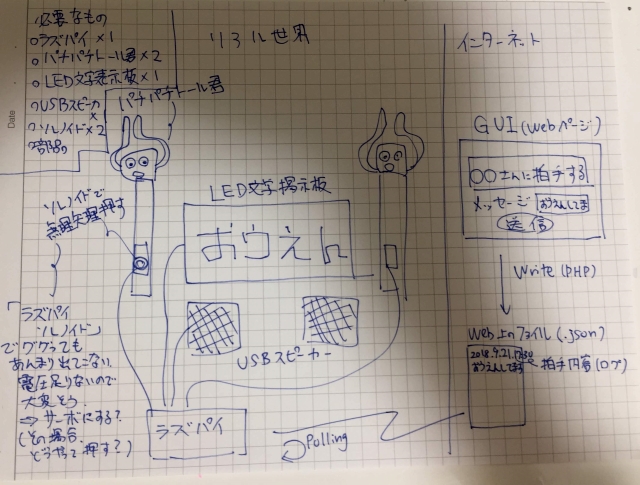 必要なもの
○ラズパイ×1
○パチパチトール君×2
○LED文字表示板×1
○USBスピーカ×
○ソルノイド×2
パチパチトール君
リアル世界
インターネット
Date
ソレノイドで
無理矢理押す
LED文字掲示板
おうえん
USBスピーカー
ラズパイ
Polling
「ラズパイ
ソルノイド」
でググっても
あんまり出てこない
電圧足りないので
大変そう.
⇒ サーボにする?
(その場合
どうやって押す?)
GUI(Webページ)
○○さんに拍手する
メッセージ おうえんしてます
送信
Write(PHP)
Web上のファイル(.json)
2018.9.21.17:30
おうえんしてます
拍手内容(ログ)